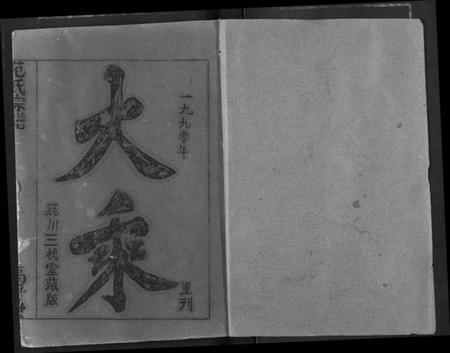 一九九零年
重刊
大乘
花川三槐堂藏版
范氏宗谱